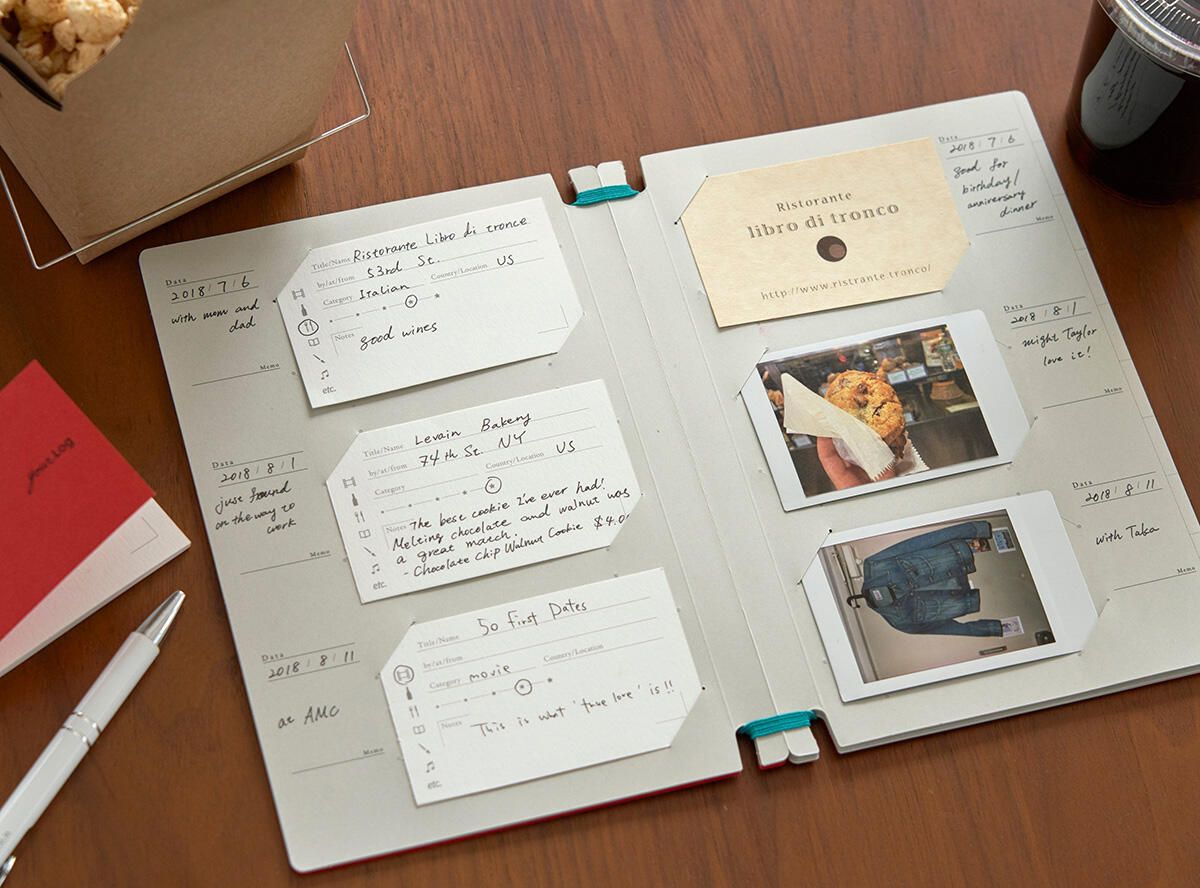 Data
2018/7/6
with mom and
dad
Memo
Title/Name Ristorante Libro di tronce
by/at/from 53rd St.
Category Italian Country/Location US
Notes good wines
etc.
Data
2018/8/1
just found
on the way to
work
Memo
Title/Name Levain Bakery
by/at/from 74th St. NY
Category Country/Location US
Notes The best cookie I've ever had!
Melting chocolate and walnut was
a great match.
- Chocolate Chip Walnut Cookie $4.0
etc.
Data
2018/8/11
at AMC
Memo
Title/Name 50 First Dates
by/at/from
Category movie Country/Location
Notes This is what 'true love' is!!
etc.
Ristorante
libro di tronco
http://www.ristrante.tronco/
Data
2018/7/6
good for
birthday/
anniversary
dinner
Memo
Data
2018/8/1
might Taylor
love it!
Memo
Data
2018/8/11
with Taka
Memo
your Log